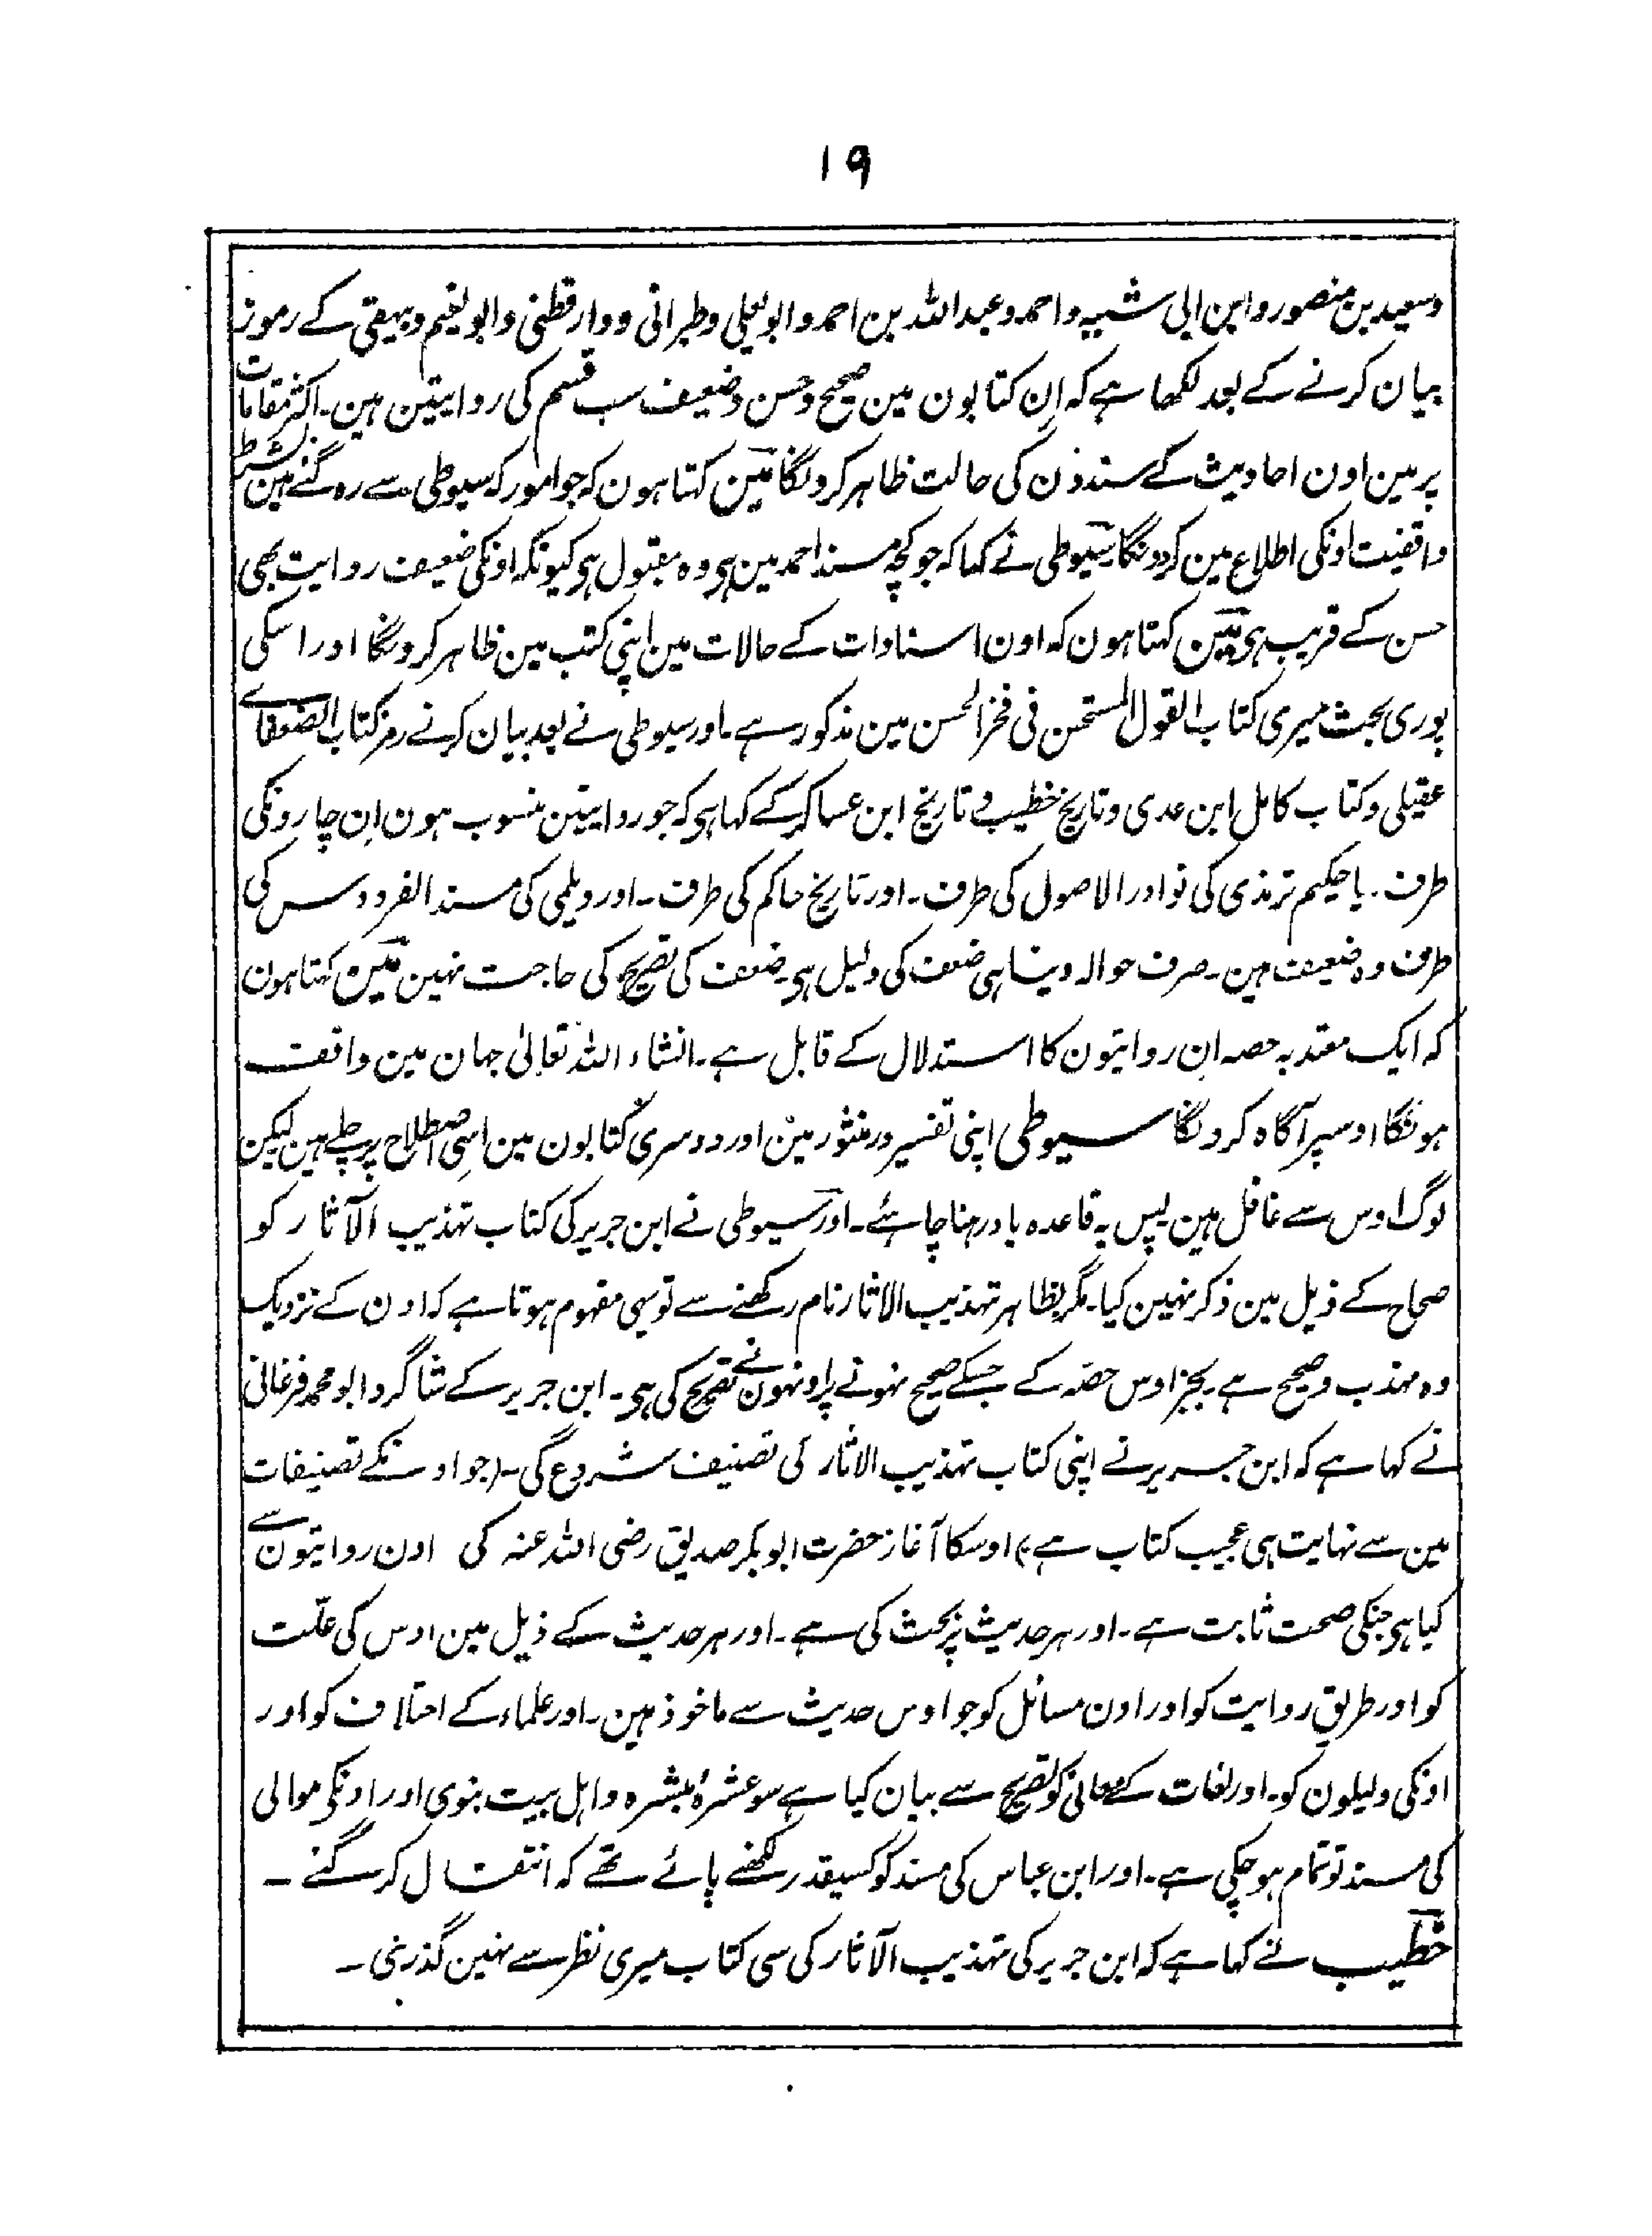 ۱۹
وسعید بن منصور وابن ابی شیبہ واحمد وعبد اللہ بن احمد وابو یعلی وطبرانی ودارقطنی وابو نعیم وبیہقی کے رموز
بیان کرنے کے بعد لکھا ہے کہ اِن کتابون مین صحیح وحسن وضعیف سب قسم کی روایتین ہین۔ اکثر مقامات
پر مین اون احادیث کے سندون کی حالت ظاہر کرونگا مین کہتا ہون کہ جو امور کہ سیوطی سے رہ گئے ہین بشرط
واقفیت اونکی اطلاع مین کردونگا سیوطی نے کہا کہ جو کچہ مسند احمد مین ہی وہ مقبول ہی کیونکہ اونکی ضعیف روایت بھی
حسن کے قریب ہی مین کہتا ہون کہ اون اسنادات کے حالات مین اپنی کتب مین ظاہر کرونگا اور اسکی
پوری بحث میری کتاب القول المستحسن فی فخر الحسن مین مذکور ہے۔ اور سیوطی نے بعد بیان کرنے رمز کتاب الضعفاے
عقیلی وکتاب کامل ابن عدی وتاریخ خطیب وتاریخ ابن عساکر کے کہا ہی کہ جو روایتین منسوب ہون اِن چارونکی
طرف۔ یا حکیم ترمذی کی نوادر الاصول کی طرف۔ اور تاریخ حاکم کی طرف۔ اور دیلمی کی مسند الفردوس کی
طرف وہ ضعیف ہین۔ صرف حوالہ دینا ہی ضعف کی دلیل ہی۔ ضعف کی تصریح کی حاجت نہین مین کہتا ہون
کہ ایک معتد بہ حصہ اِن روایتون کا استدلال کے قابل ہے۔ انشاء اللہ تعالیٰ جہان مین واقف
ہونگا اوسپر آگاہ کرونگا سیوطی اپنی تفسیر در منثور مین اور دوسری کتابون مین اسی اصطلاح پر چلے ہین لیکن
لوگ اوس سے غافل ہین پس یہ قاعدہ یاد رہنا چاہئے۔ اور سیوطی نے ابن جریر کی کتاب تہذیب الآثار کو
صحاح کے ذیل مین ذکر نہین کیا۔ مگر بظاہر تہذیب الاثار نام رکھنے سے تو یہی مفہوم ہوتا ہے کہ اون کے نزدیک
وہ مہذب وصحیح ہے۔ بجز اوس حصّہ کے جسکے صحیح نہونے پر اونہون نے تصریح کی ہی۔ ابن جریر کے شاگرد ابو محمد فرغانی
نے کہا ہے کہ ابن جریر نے اپنی کتاب تہذیب الاثار کی تصنیف شروع کی۔ (جو اونکے تصنیفات
مین سے نہایت ہی عجیب کتاب ہے) اوسکا آغاز حضرت ابو بکر صدیق رضی اللہ عنہ کی اون روایتون سے
کیا ہی جنکی صحت ثابت ہے۔ اور ہر حدیث پر بحث کی ہے۔ اور ہر حدیث کے ذیل مین اوس کی علّت
کو اور طریق روایت کو اور اون مسائل کو جو اوس حدیث سے ماخوذ ہین۔ اور علماء کے اختلاف کو اور
اونکی دلیلون کو۔ اور لغات کے معانی کو تصریح سے بیان کیا ہے سو عشرۂ مبشرہ واہل بیت نبوی اور اونکی موالی
کی مسند تو تمام ہو چکی ہے۔ اور ابن عباس کی مسند کو کسیقدر لکھنے پائے تھے کہ انتقال کر گئے ۔
خطیب نے کہا ہے کہ ابن جریر کی تہذیب الآثار کی سی کتاب میری نظر سے نہین گذری ۔